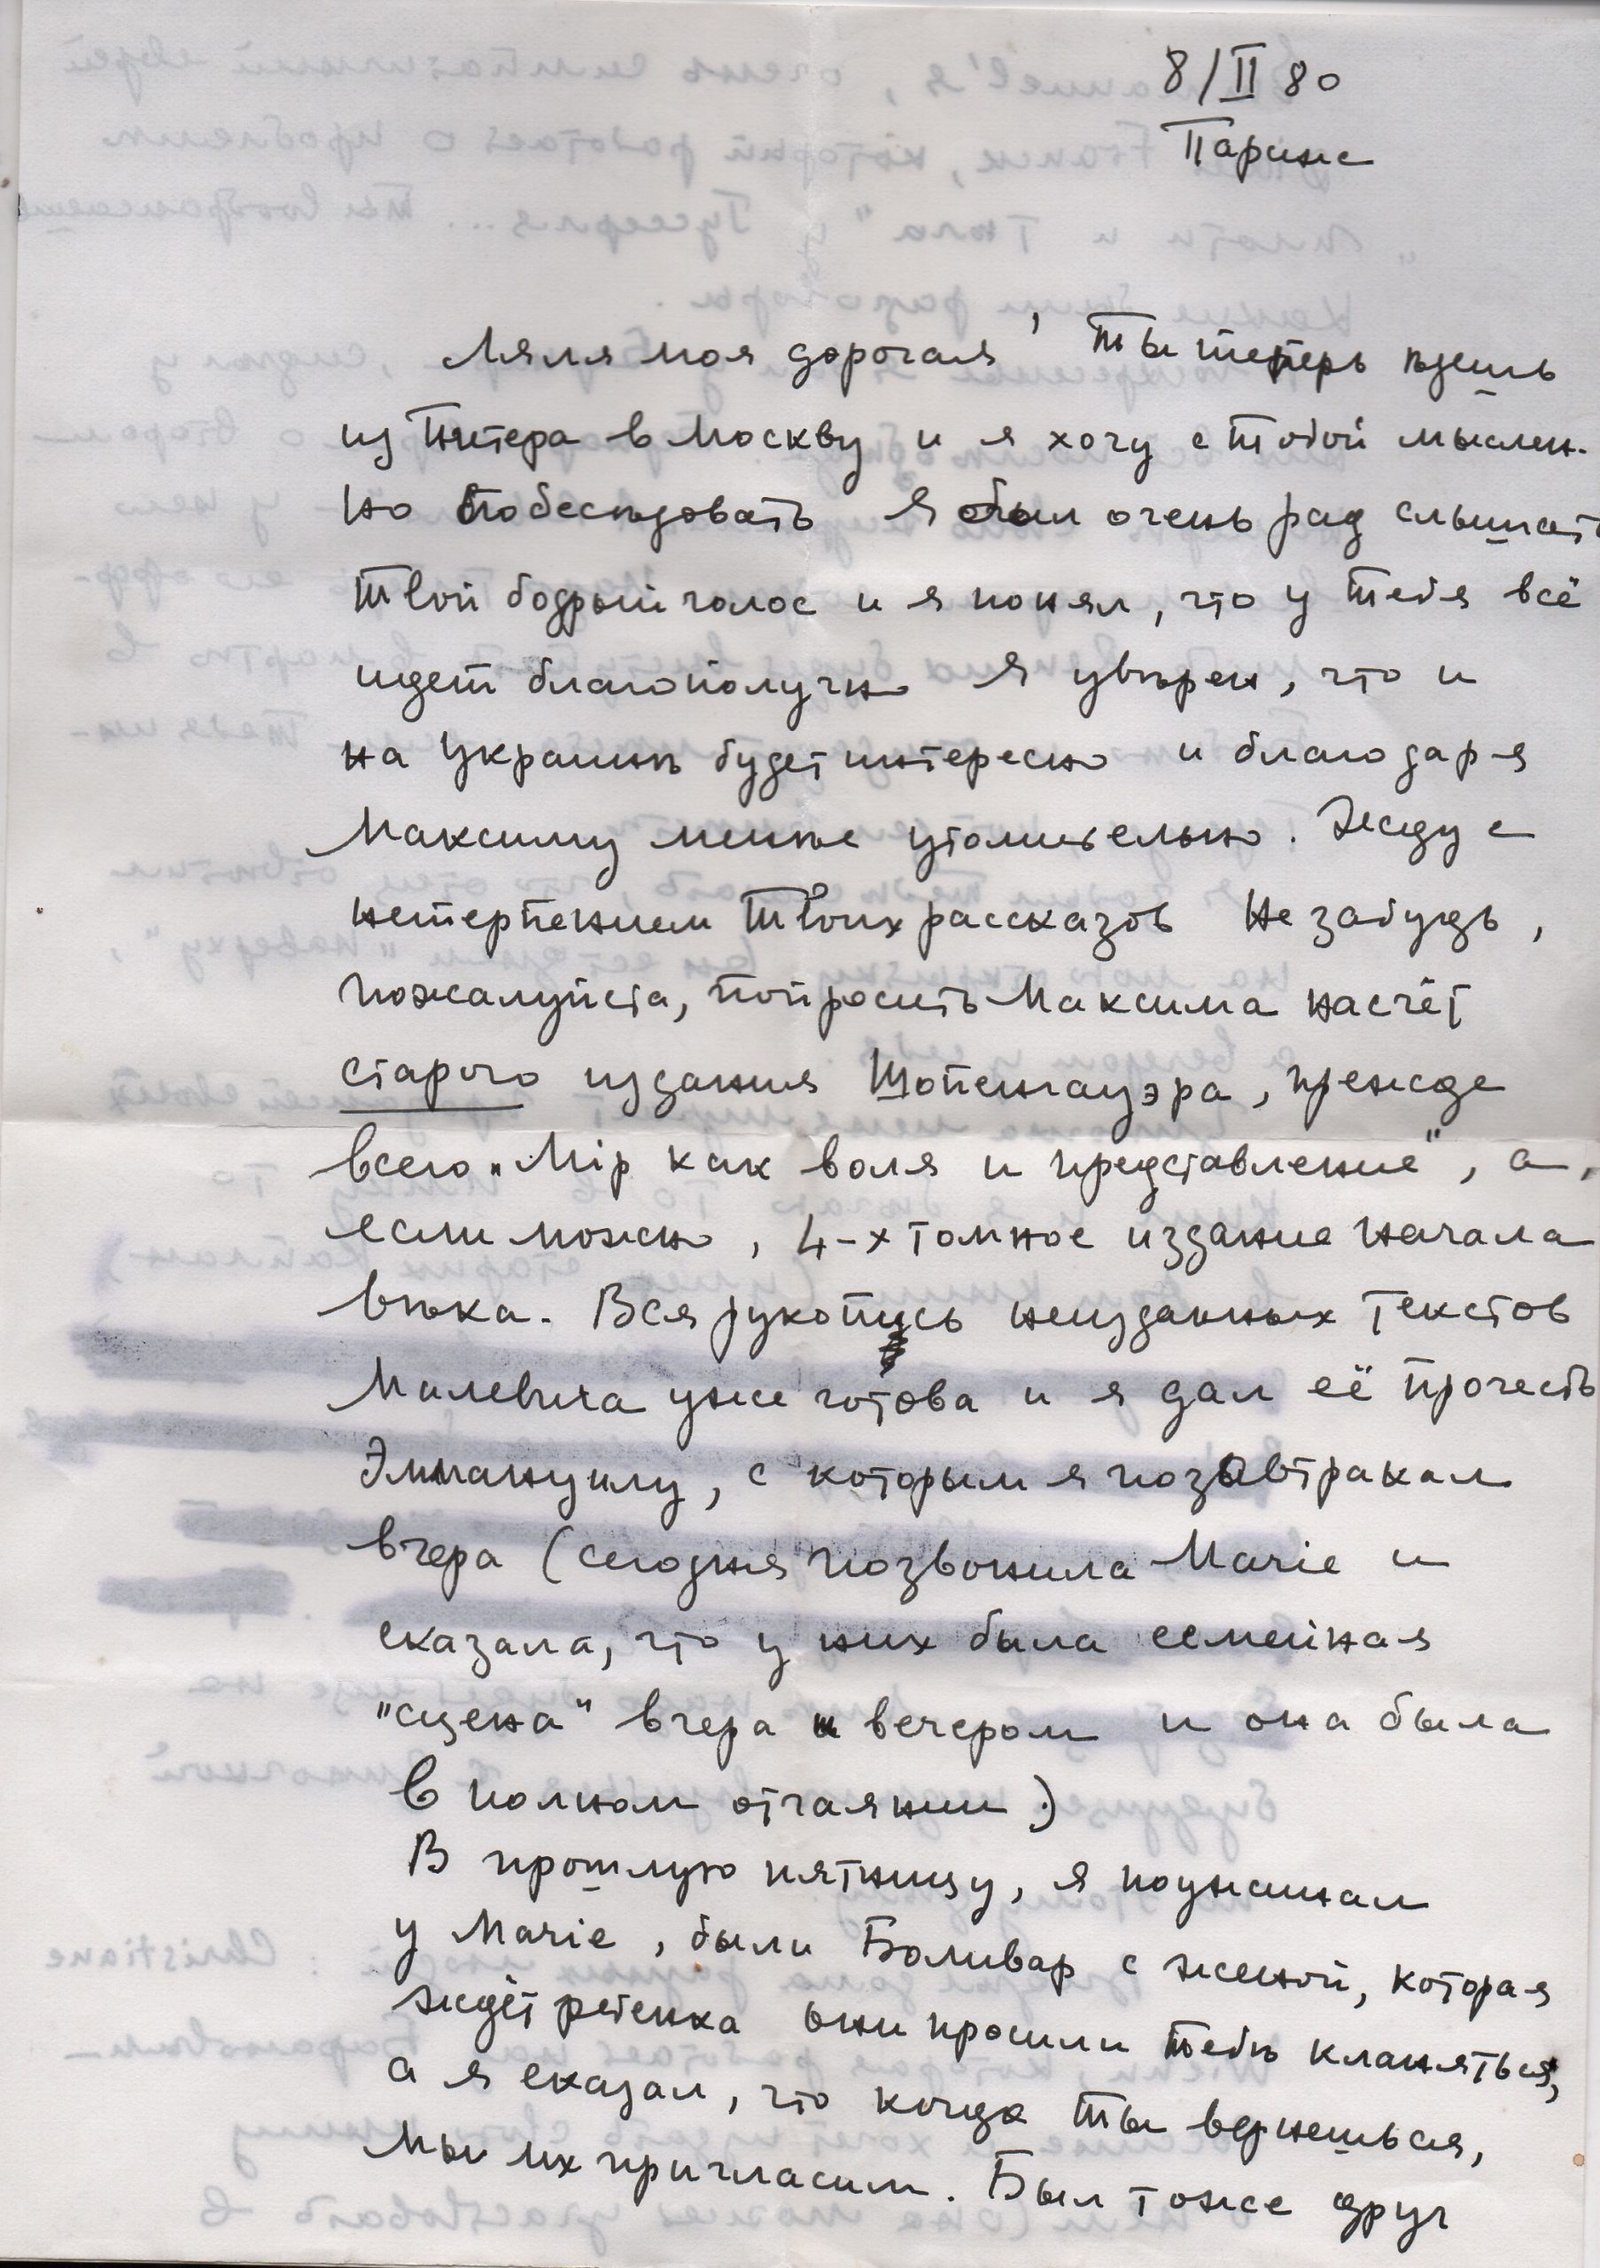 8/II 80
Париж
Ляля моя дорогая, Ты теперь ѣдешь
из Питера в Москву и я хочу с Тобой мыслен-
но побесѣдовать Я был очень рад слышать
Твой бодрый голос и я понял, что у Тебя всё
идет благополучно Я увѣрен, что и
на Украинѣ будет интересно и благодаря
Максиму менѣе утомительно. Жду с
нетерпением Твоих рассказов Не забудь,
пожалуйста, попросить Максима насчёт
старого издания Шопенгауэра, прежде
всего „Мiр как воля и представление", а,
если можно, 4-х томное издание начала
вѣка. Вся рукопись неизданных текстов
Малевича уже готова и я дал её прочесть
Эммануилу, с которым я позавтракал
вчера (сегодня позвонила Marie и
сказала, что у них была семейная
"сцена" вчера вечером и она была
в полном отчаянии.)
В прошлую пятницу, я поужинал
у Marie, были Боливар с женой, которая
ждёт ребенка они просили Тебѣ кланяться,
а я сказал, что когда Ты вернешься,
мы их пригласим. Был тоже друг